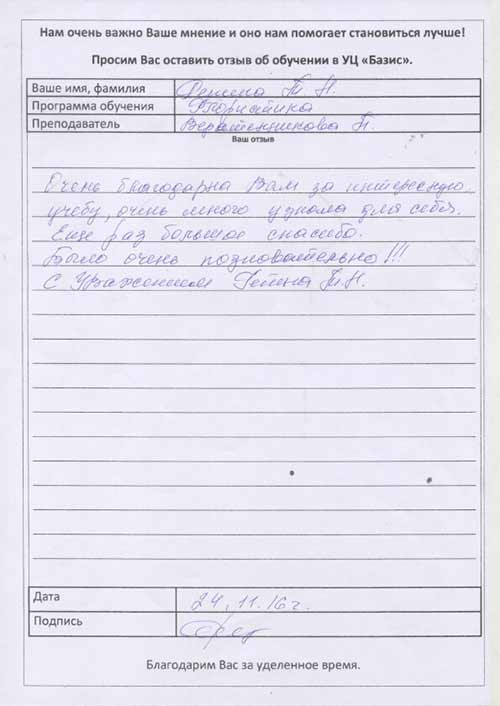 Нам очень важно Ваше мнение и оно нам помогает становиться лучше!
Просим Вас оставить отзыв об обучении в УЦ «Базис».
Ваше имя, фамилия Репина Т Н.
Программа обучения Флористика
Преподаватель П.
Ваш отзыв
Очень благодарна Вам за интересную
учебу, очень много узнала для себя.
Еще раз большое спасибо.
Было очень познавательно!!!
С Уважением Репина Т.Н.
Дата 24.11.16г.
Подпись
Благодарим Вас за уделенное время.